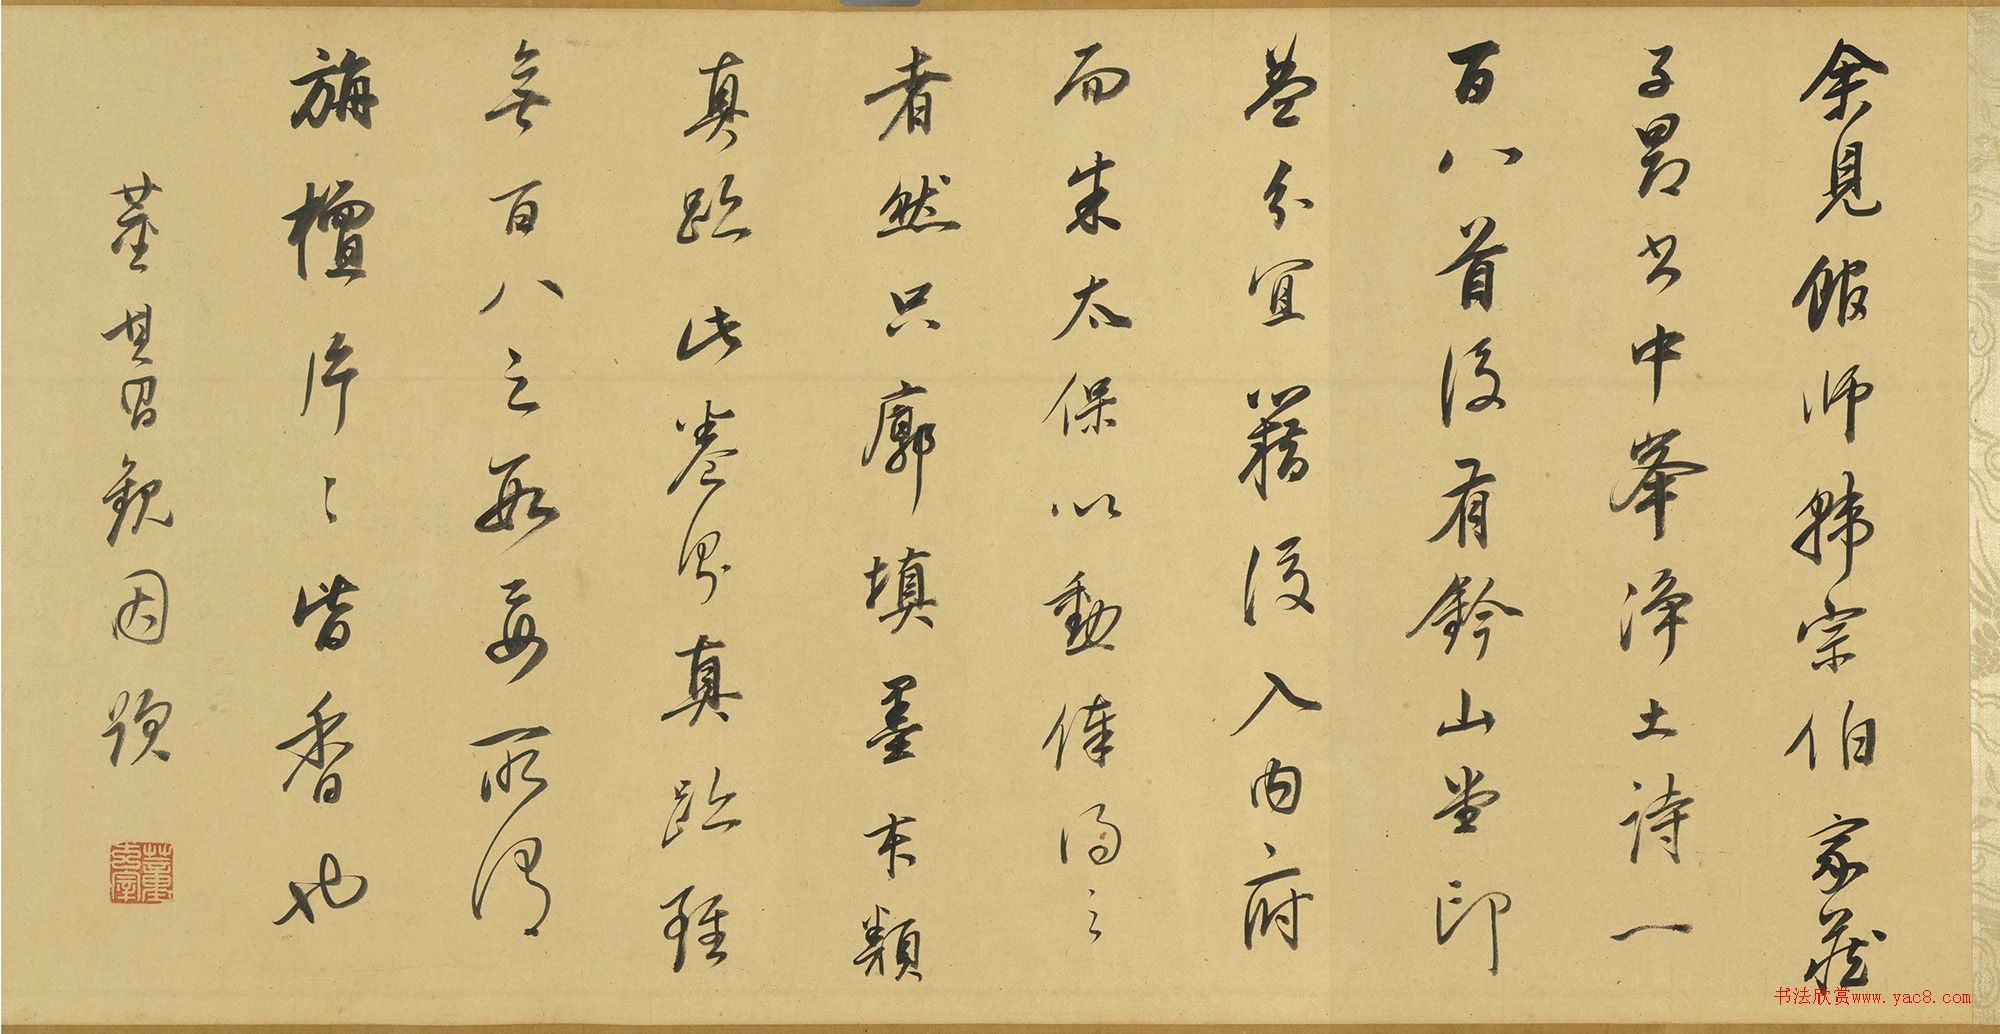 余見館師韓宗伯家藏
子昂書中峯淨土詩一
百八首後有鈐山堂印
蓋分宜籍後入內府
而朱太保以勳俸得之
者然只廓填墨本類
真跡此卷異真跡雖
無百八之數要所謂
旃檀片片皆香也
董其昌觀因題
董其昌
书法欣赏www.yac8.com